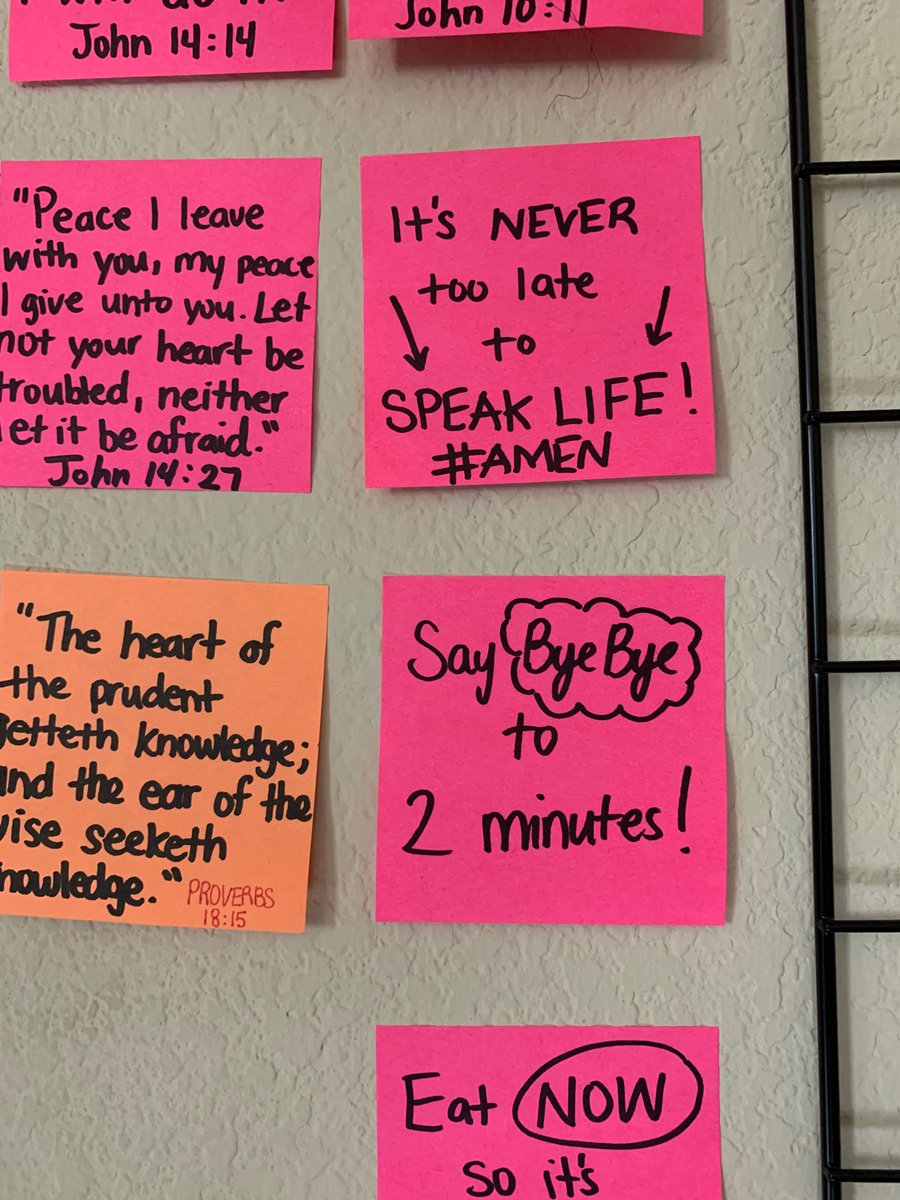 John 14:14
John 10:11
"Peace I leave
with you, my peace
I give unto you. Let
not your heart be
troubled, neither
let it be afraid."
John 14:27
It's NEVER
too late
to
SPEAK LIFE!
#AMEN
"The heart of
the prudent
getteth knowledge;
and the ear of the
wise seeketh
knowledge."
PROVERBS
18:15
Say Bye Bye
to
2 minutes!
Eat NOW
so it's